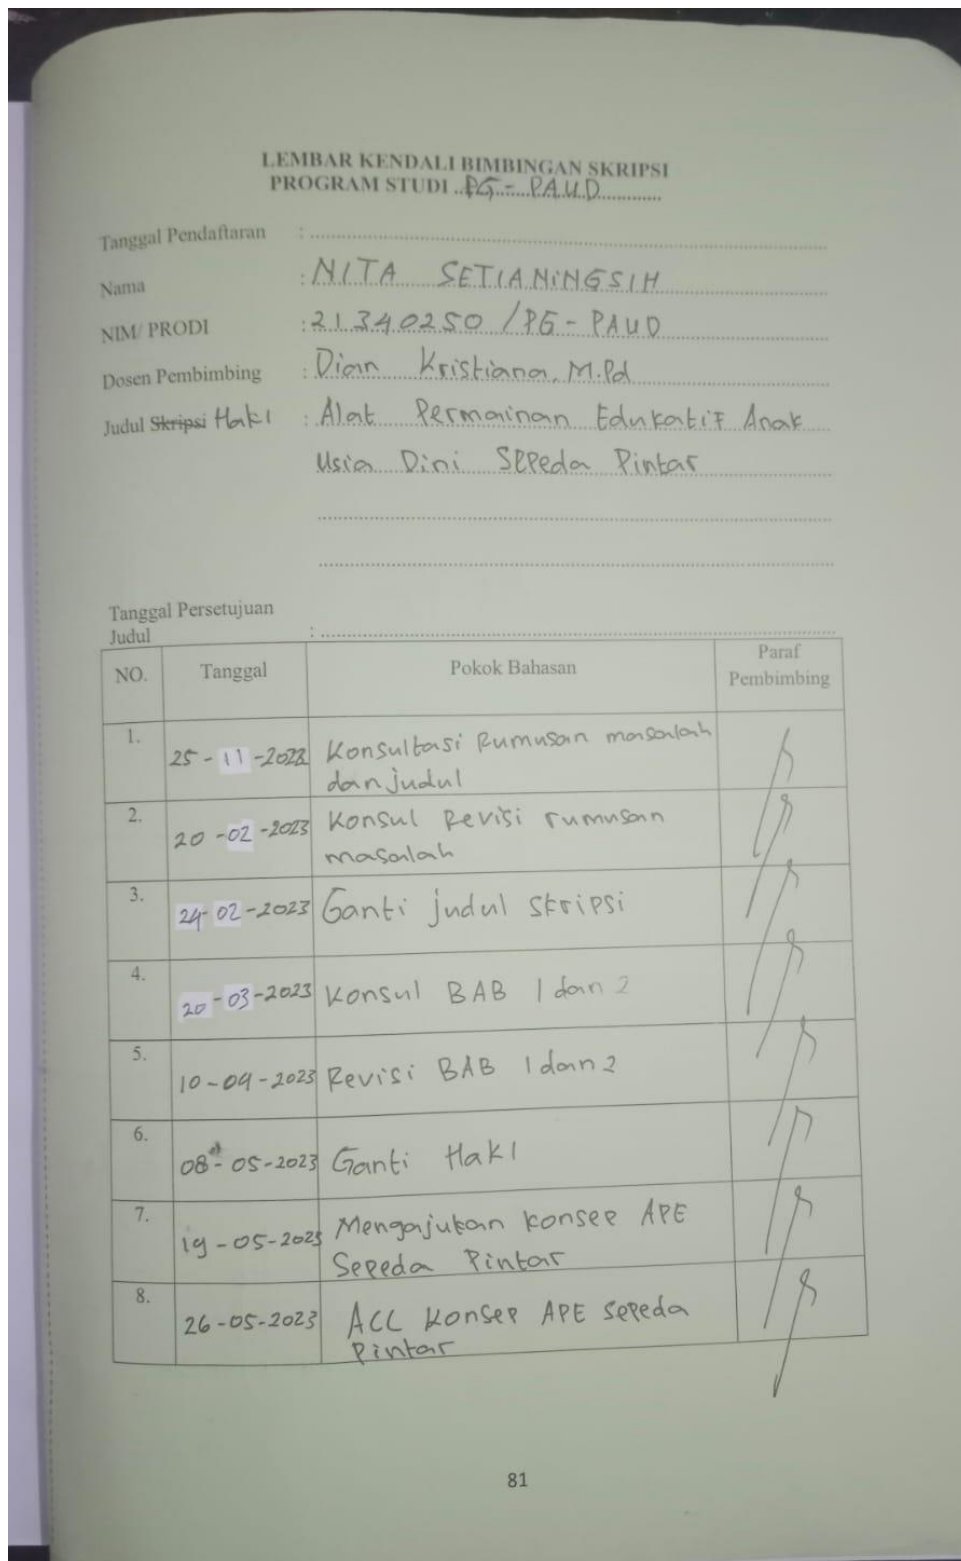 LEMBAR KENDALI BIMBINGAN SKRIPSI
PROGRAM STUDI ..PG - PAUD..............
Tanggal Pendaftaran : ..............................
Nama : NITA SETIANINGSIH
NIM/ PRODI : 21340250 / PG - PAUD
Dosen Pembimbing : Dian Kristiana, M.Pd
Judul Skripsi HakI : Alat Permainan Edukatif Anak
Usia Dini Sepeda Pintar
Tanggal Persetujuan
Judul : ..............................
NO. Tanggal Pokok Bahasan Paraf Pembimbing
1. 25 - 11 - 2022 Konsultasi Rumusan masalah
dan judul
2. 20 - 02 - 2023 Konsul Revisi rumusan
masalah
3. 24 - 02 - 2023 Ganti judul skripsi
4. 20 - 03 - 2023 Konsul BAB 1 dan 2
5. 10 - 04 - 2023 Revisi BAB 1 dan 2
6. 08 - 05 - 2023 Ganti HakI
7. 19 - 05 - 2023 Mengajukan konsep APE
Sepeda Pintar
8. 26 - 05 - 2023 ACC Konsep APE sepeda
Pintar
81